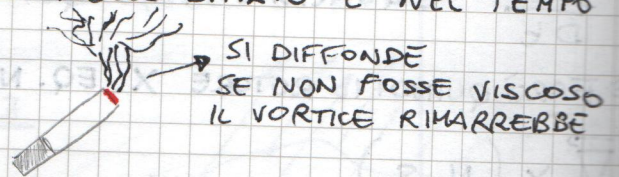 E NEL TEMPO
SI DIFFONDE
SE NON FOSSE VISCOSO
IL VORTICE RIMARREBBE